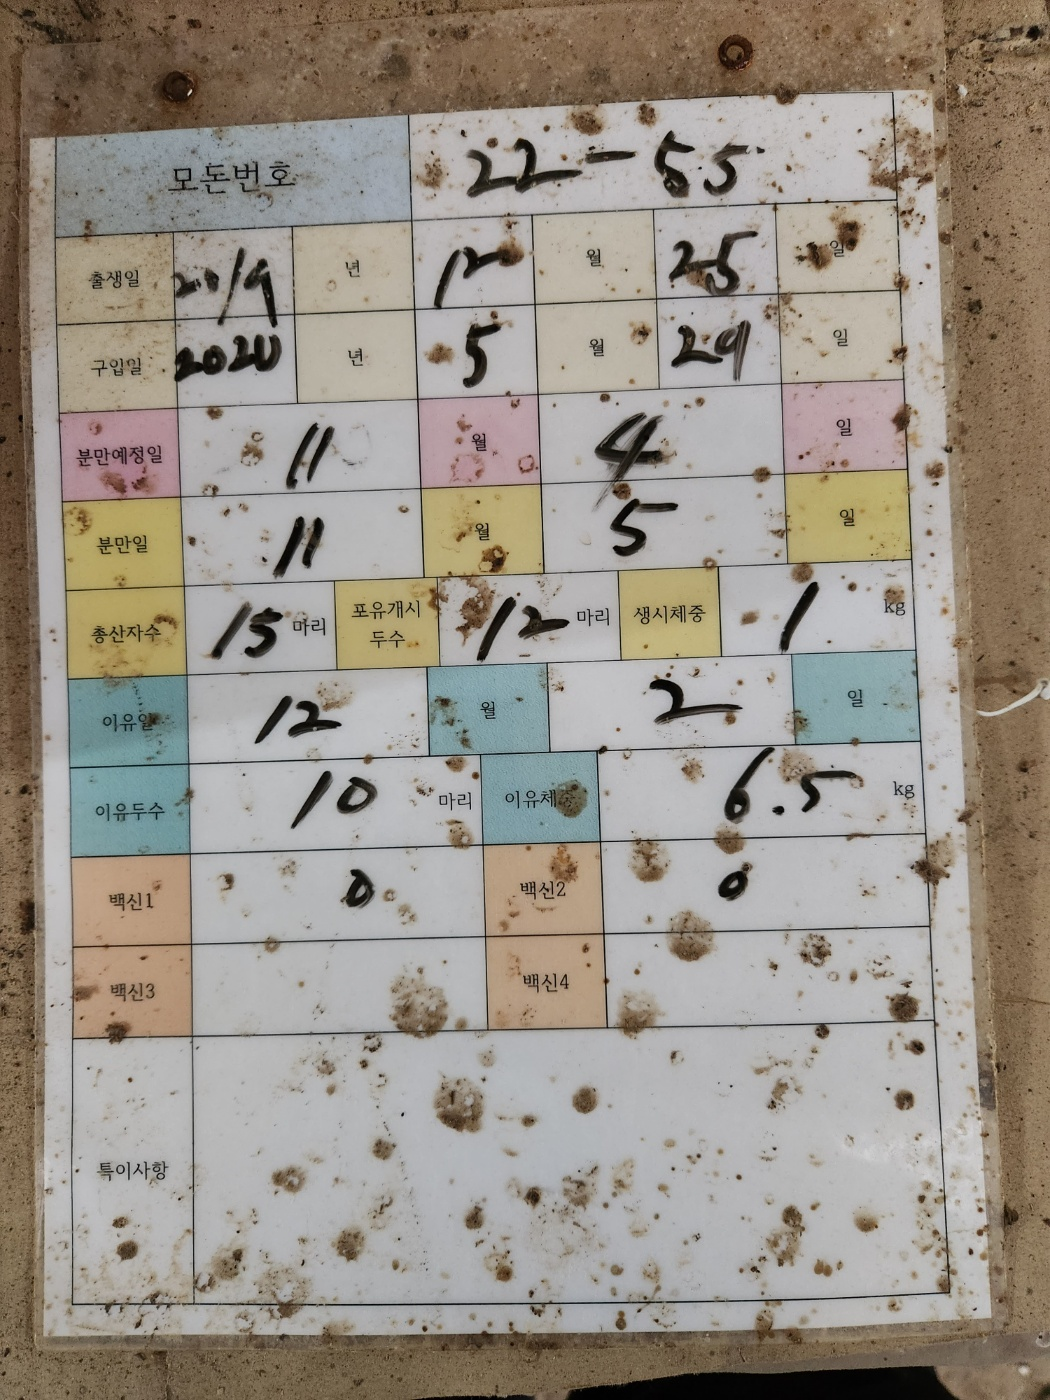 모돈번호 22-55
출생일 2019 년 12 월 25 일
구입일 2020 년 5 월 29 일
분만예정일 11 월 4 일
분만일 11 월 5 일
총산자수 15 마리 포유개시두수 12 마리 생시체중 1 kg
이유일 12 월 2 일
이유두수 10 마리 이유체 6.5 kg
백신1 0 백신2 0
백신3 백신4
특이사항